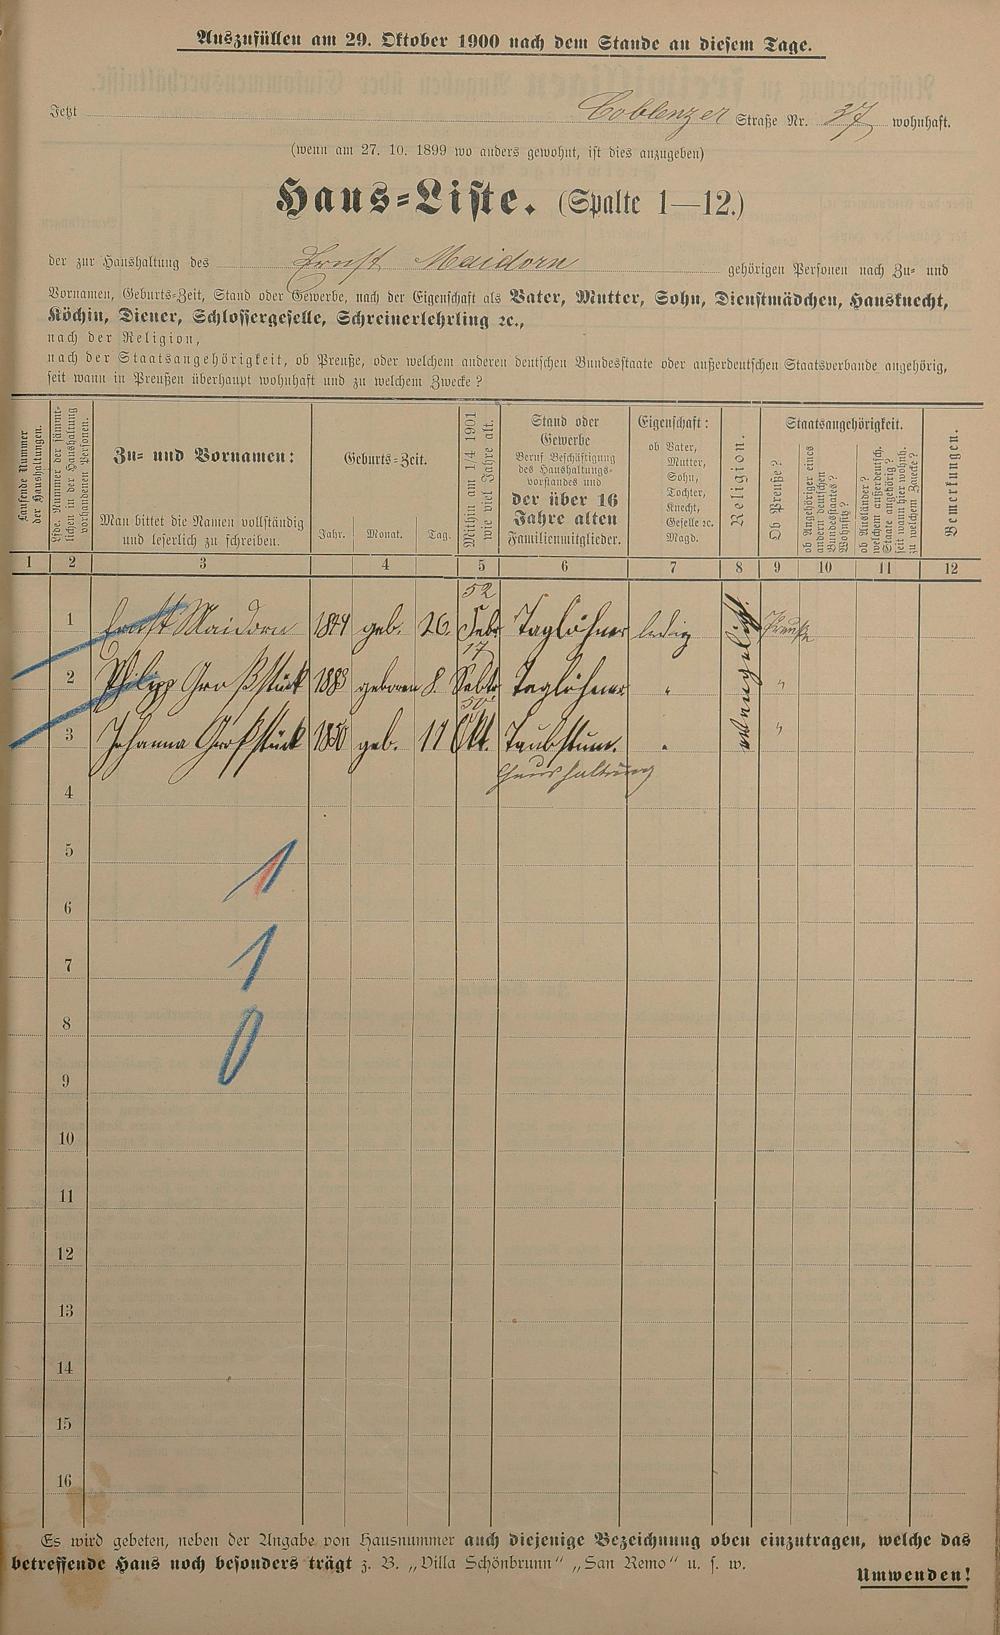 Auszufüllen am 29. Oktober 1900 nach dem Stande an diesem Tage.
Jetzt Coblenzer Straße Nr. 37 wohnhaft.
(wenn am 27. 10. 1899 wo anders gewohnt, ist dies anzugeben)
Haus-Liste. (Spalte 1—12.)
der zur Haushaltung des Ernst Maidorn gehörigen Personen nach Zu- und
Vornamen, Geburts-Zeit, Stand oder Gewerbe, nach der Eigenschaft als Vater, Mutter, Sohn, Dienstmädchen, Hausknecht,
Köchin, Diener, Schlossergeselle, Schreinerlehrling ꝛc.,
nach der Religion,
nach der Staatsangehörigkeit, ob Preuße, oder welchem anderen deutschen Bundesstaate oder außerdeutschen Staatsverbande angehörig,
seit wann in Preußen überhaupt wohnhaft und zu welchem Zwecke?
Laufende Nummer
der Haushaltungen.
Lfde. Nummer der sämmt-
lichen in der Haushaltung
vorhandenen Personen.
Zu- und Vornamen:
Man bittet die Namen vollständig
und leserlich zu schreiben.
Geburts-Zeit.
Jahr. Monat. Tag.
Mithin am 1/4 1901
wie viel Jahre alt.
Stand oder
Gewerbe
Beruf Beschäftigung
des Haushaltungs-
vorstandes und
der über 16
Jahre alten
Familienmitglieder.
Eigenschaft:
ob Vater,
Mutter,
Sohn,
Tochter,
Knecht,
Geselle ꝛc.
Magd.
Religion.
Staatsangehörigkeit.
Ob Preuße?
ob Angehöriger eines
andern deutschen
Bundesstaates?
Wohnsitz?
ob Ausländer?
welchem außerdeutsch.
Staate angehörig?
seit wann hier wohnh.
zu welchem Zwecke?
Bemerkungen.
1 2 3 4 5 6 7 8 9 10 11 12
52
1 Ernst Maidorn 1849 geb. 26. Febr Taglöhner ledig Preuße
17
2 Philipp Großstück 1883 geboren 8. Sebtr Taglöhner "
50
3 Johanna Großstück 1850 geb. 17 Okt. Taubstum. "
Haushaltung
4
5
1
6
1
7
0
8
9
10
11
12
13
14
15
16
Es wird gebeten, neben der Angabe von Hausnummer auch diejenige Bezeichnung oben einzutragen, welche das
betreffende Haus noch besonders trägt z. B. „Villa Schönbrunn" „San Remo" u. s. w.
Umwenden!